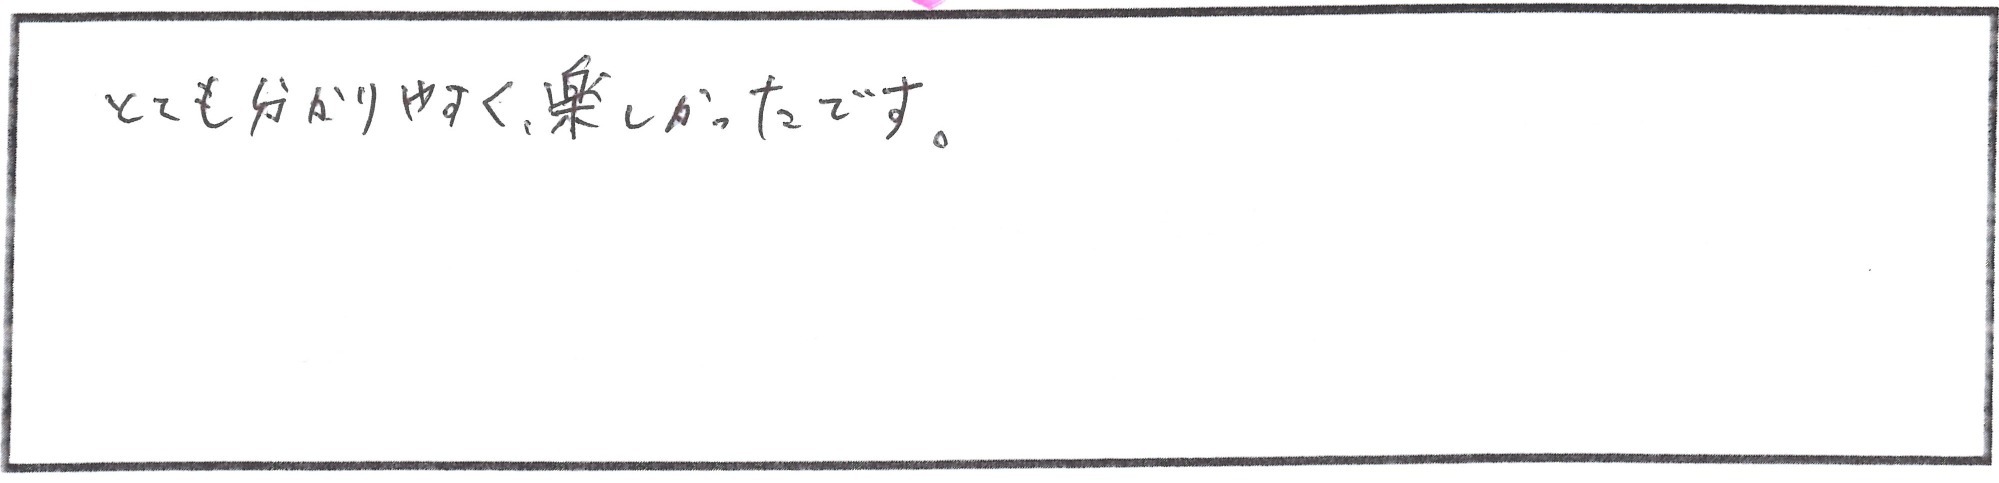 とても分かりやすく、楽しかったです。